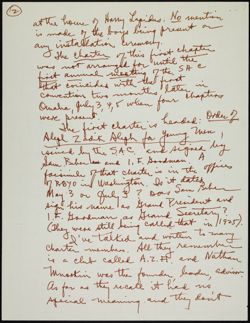 2
at the home of Harry Lapidus. No mention
is made of the boys being present or
any installation ceremony.
The charter of this first chapter
was not arranged for until the
first annual meeting of the SAC
that coincided with the first
convention two months later in
Omaha, July 3, 4, 5 when four chapters
were present.
The first charter is headed: Order of
Aleph Zadik Aleph for Young Men,
issued by the SAC and signed by
Sam Beber and I.F. Goodman. A
facsimile of that charter is in the offices
of BBYO in Washington. Do dates
May 3 or July 3? Does Sam Beber
sign his name as Grand President and
I.F. Goodman as Grand Secretary?
(They were still being called that in 1925).
I've talked and written to many
charter members. All they remember
is a club called A.Z.A. and Nathan
Mnookin was the founder, leader, advisor.
As far as they recall it had no
special meaning and they don't